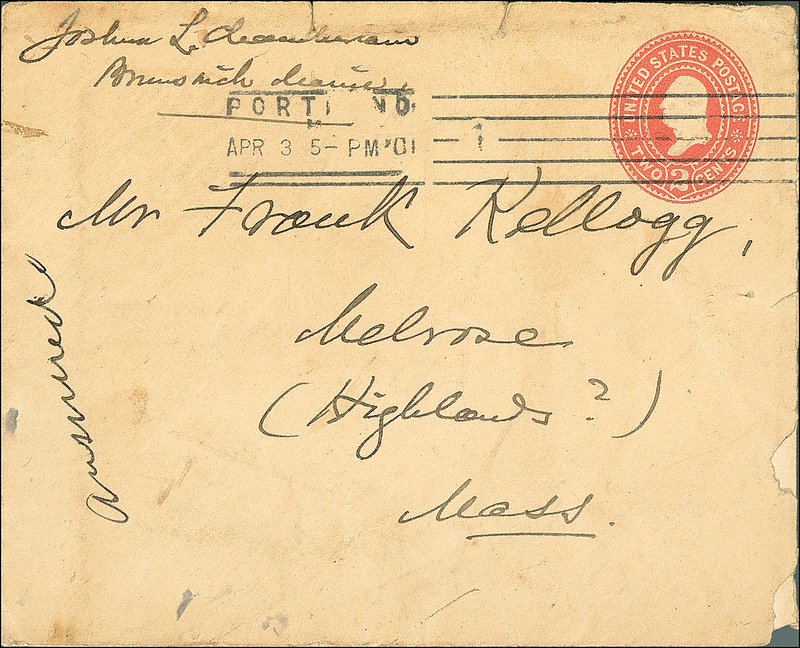 Joshua L. Chamberlain
Brunswick Maine
PORTL ND.
APR 3 5-PM '01
1
UNITED STATES POSTAGE
TWO 2 CENTS
Mr Frank Kellogg,
Melrose
(Highlands ?)
Mass.
answered